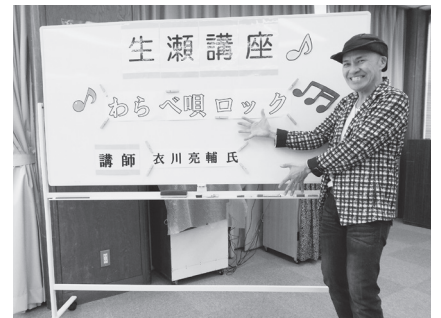 生瀬講座
わらべ唄ロック
講師 衣川亮輔氏